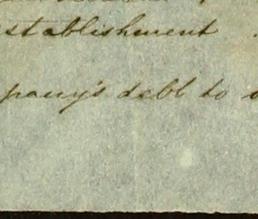 establishment
pany's debt to